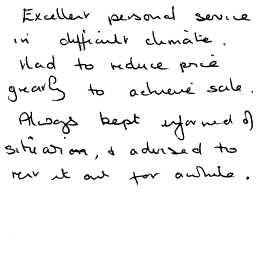 Excellent personal service
in difficult climate.
Had to reduce price
greatly to achieve sale.
Always kept informed of
situation, & advised to
rent it out for awhile.